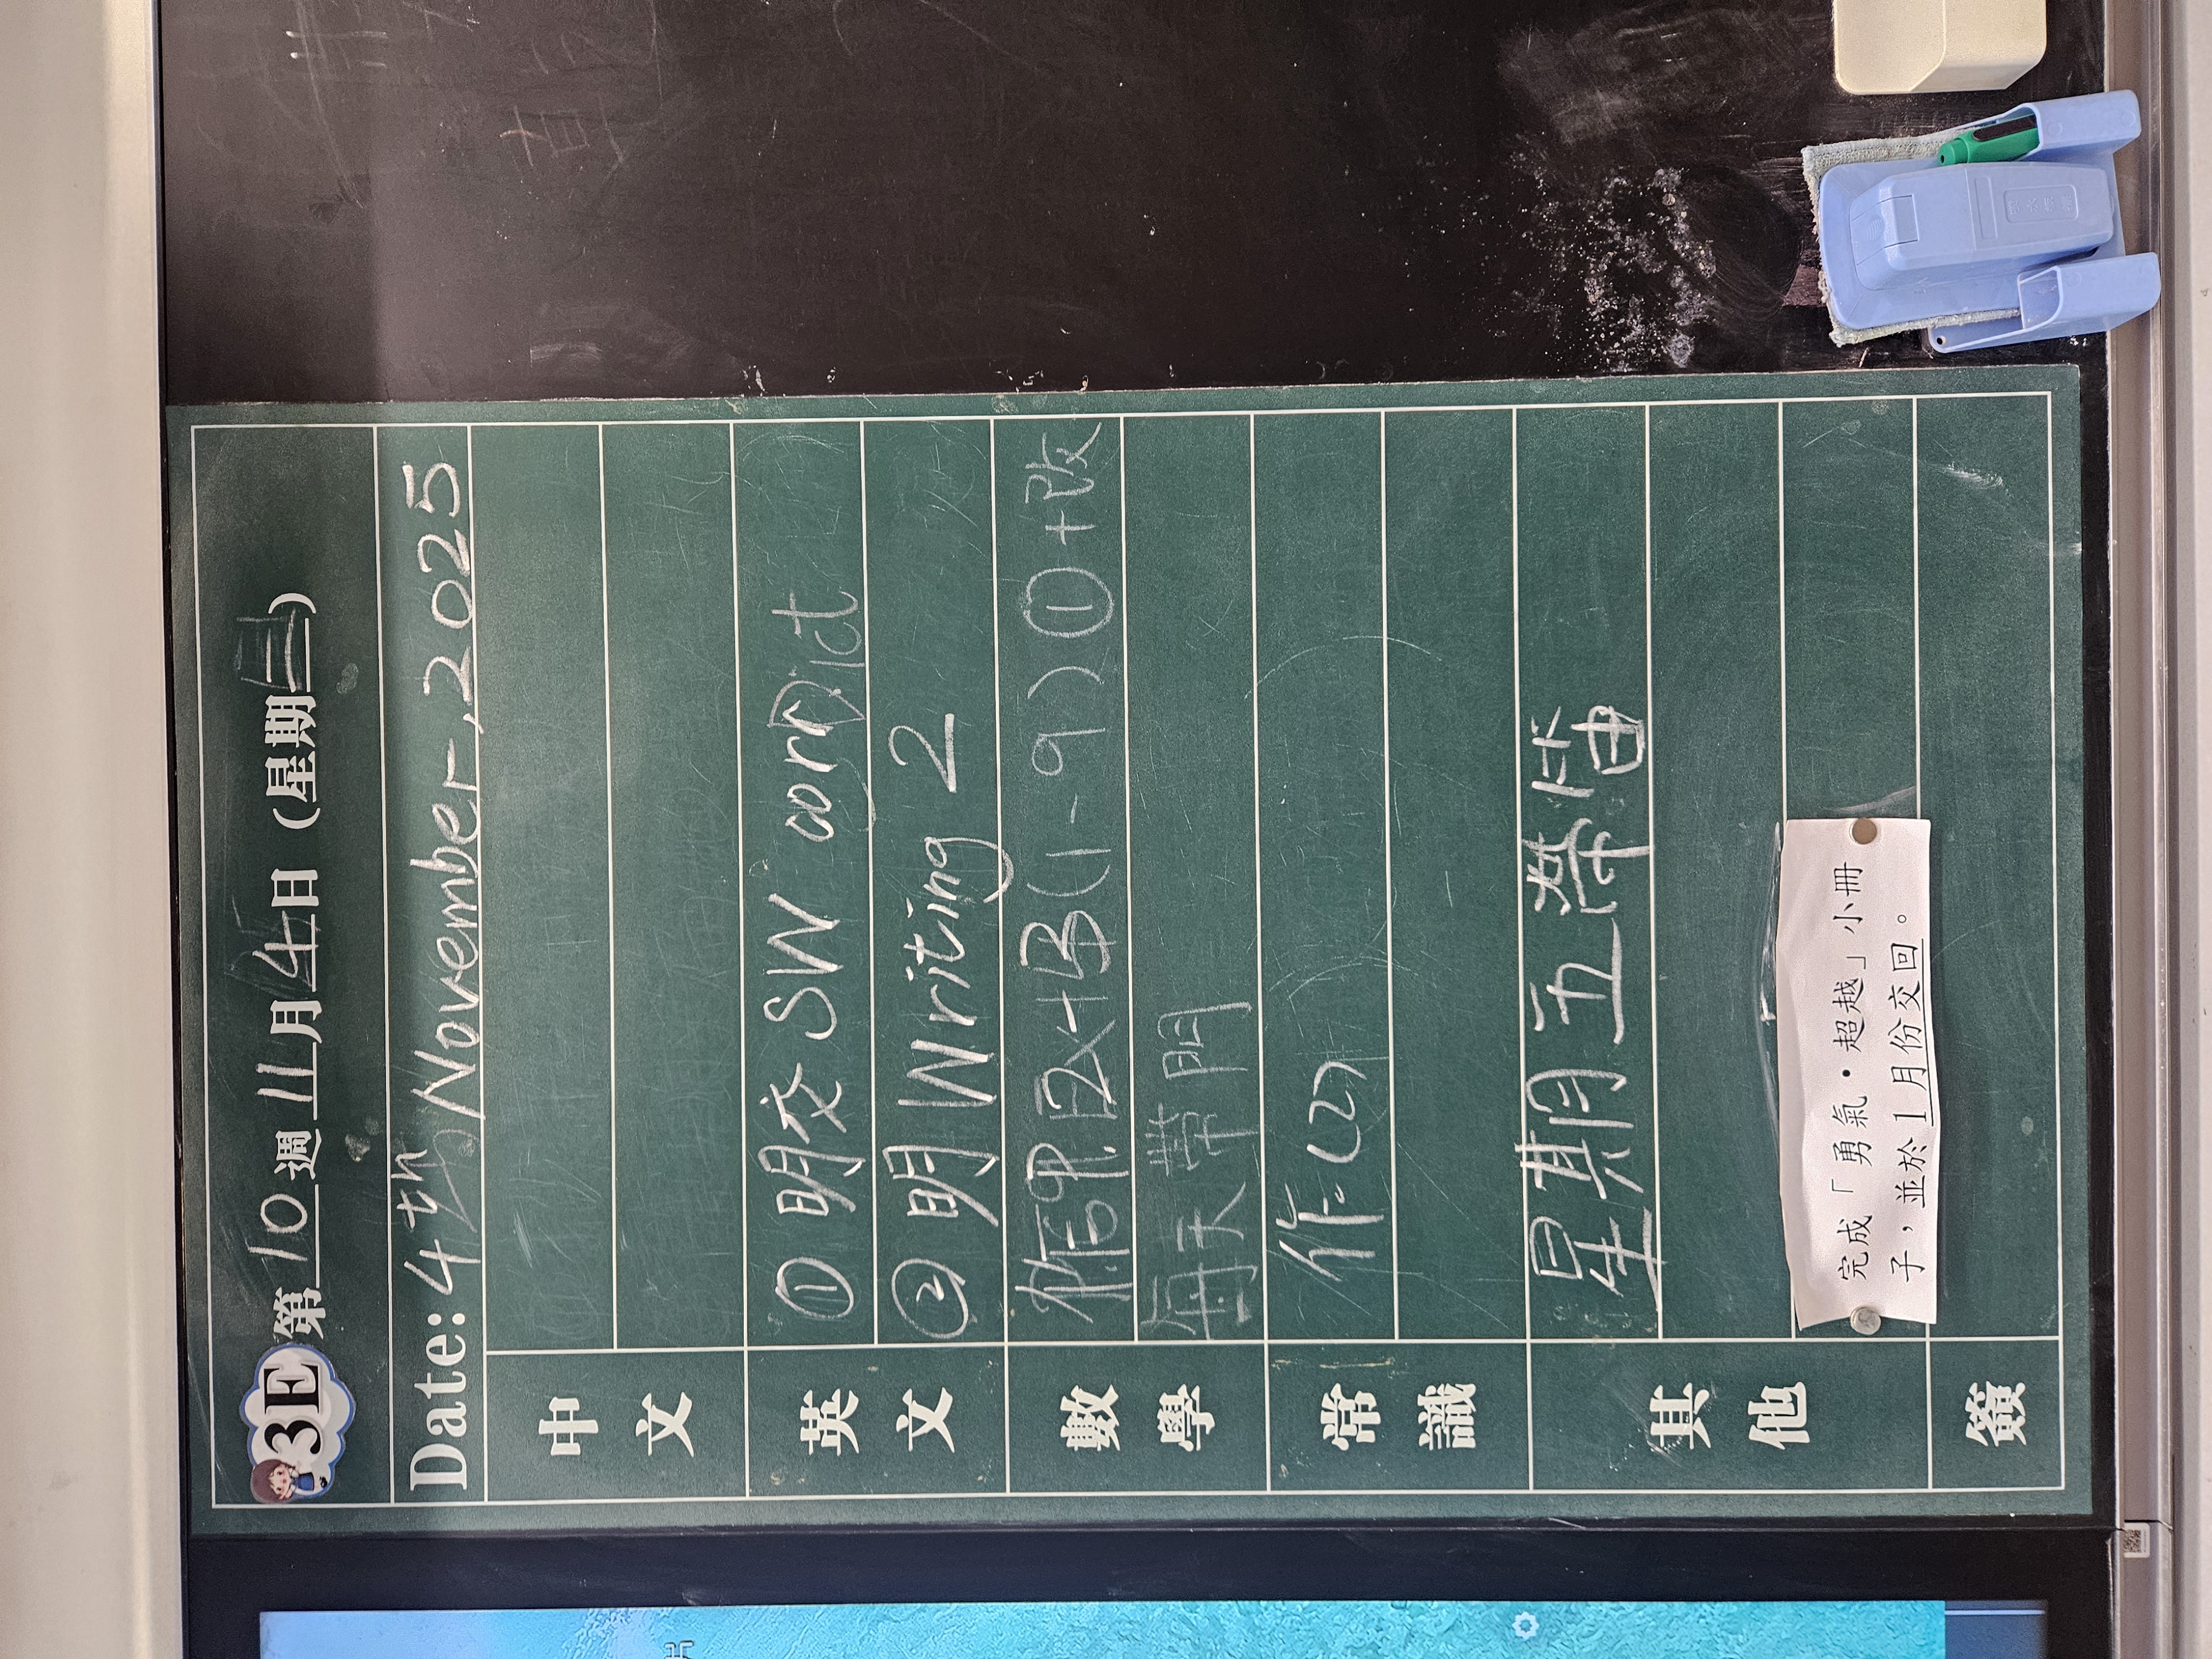 3E 第10週11月4日(星期二)
Date: 4th November, 2025
中文
英文
① 明交 SW corr
② 明 Writing 2
數學
(1-9) ① +改
每天帶
常識
作(2)
其他
星期五帶笛
完成「勇氣・超越」小冊
子，並於1月份交回。
簽